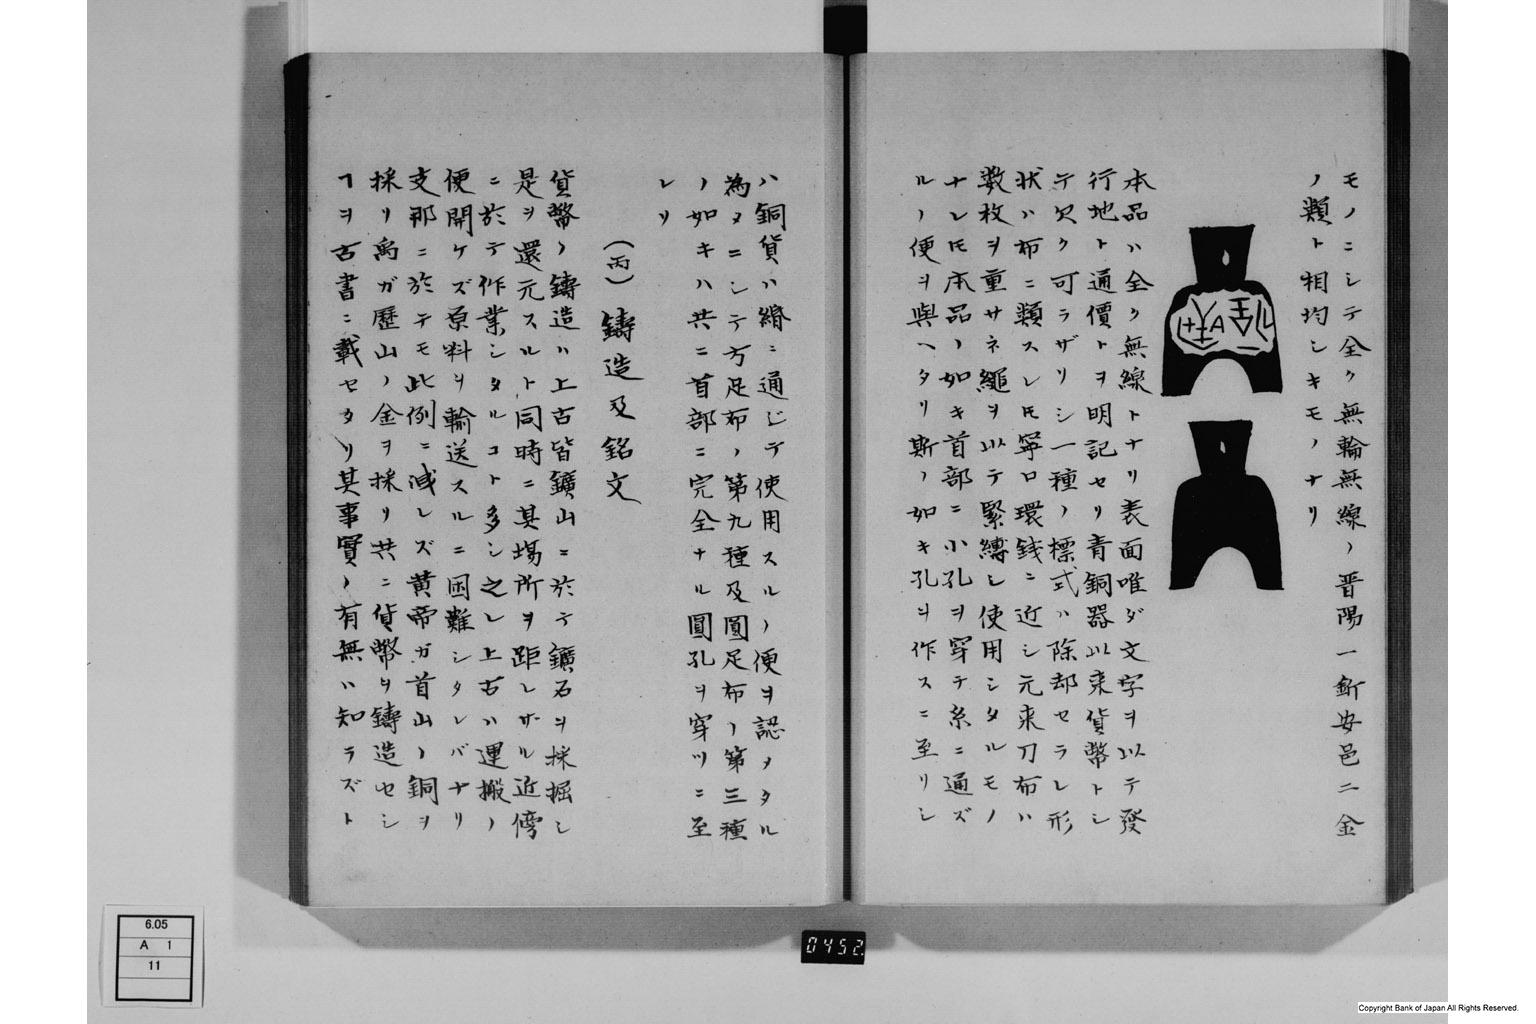 モノニシテ全ク無輪無線ノ晋陽一釿安邑二金
ノ類ト相均シキモノナリ
本品ハ全ク無線トナリ表面唯ダ文字ヲ以テ發
行地ト通價トヲ明記セリ青銅器以来貨幣トシ
テ欠ク可ラザリシ一種ノ標式ハ除却セラレ形
状ハ布ニ類スレ𪜈寧ロ環銭ニ近シ元来刀布ハ
数枚ヲ重サネ繩ヲ以テ緊縛シ使用シタルモノ
ナレ𪜈本品ノ如キ首部ニ小孔ヲ穿テ糸ニ通ズ
ルノ便ヲ與ヘタリ斯ノ如キ孔ヲ作スニ至リシ
ハ銅貨ハ緡ニ通じテ使用スルノ便ヲ認メタル
為メニシテ方足布ノ第九種及圓足布ノ第三種
ノ如キハ共ニ首部ニ完全ナル圓孔ヲ穿ツニ至
レリ
(丙)鋳造及銘文
貨幣ノ鋳造ハ上古皆鑛山ニ於テ鑛石ヲ採掘シ
是ヲ還元スルト同時ニ其場所ヲ距レザル近傍
ニ於テ作業シタルコト多シ之レ上古ハ運搬ノ
便開ケズ原料ヲ輸送スルニ困難シタレバナリ
支那ニ於テモ此例ニ減レズ黄帝ガ首山ノ銅ヲ
採リ禹ガ歴山ノ金ヲ採リ共ニ貨幣ヲ鋳造セシ
ヿヲ古書ニ載セタリ其事實ノ有無ハ知ラズト
0452
6.05
A 1
11
Copyright Bank of Japan All Rights Reserved.